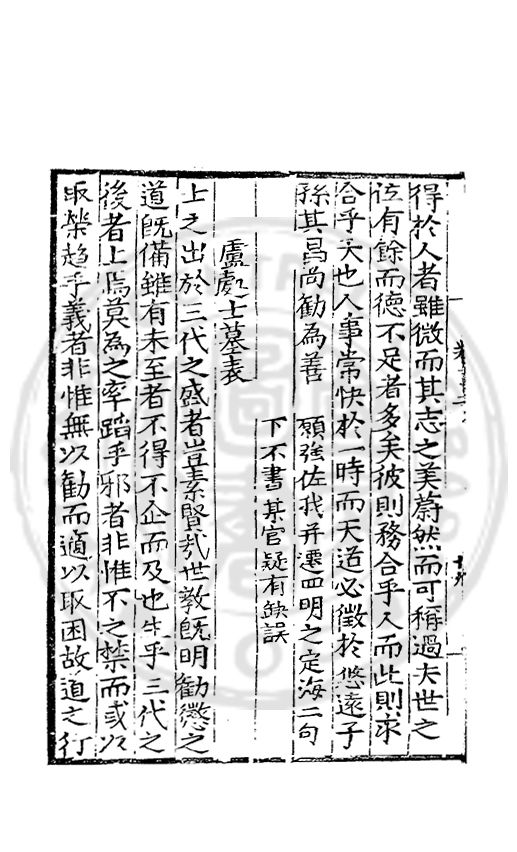 得於人者雖微而其志之美蔚然而可稱過夫世之
位有餘而德不足者多矣彼則務合乎人而此則求
合乎天也人事常快於一時而天道必徵於悠遠子
孫其昌尚勸為善 願強佐我并遷四明之定海二句
下不書某官疑有缺誤
盧處士墓表
上之出於三代之盛者豈素賢哉世教既明勸懲之
道既備雖有未至者不得不企而及也生乎三代之
後者上焉莫為之率蹈乎邪者非惟不之禁而或以
取榮趋乎義者非惟無以勸而適以取困故道之行